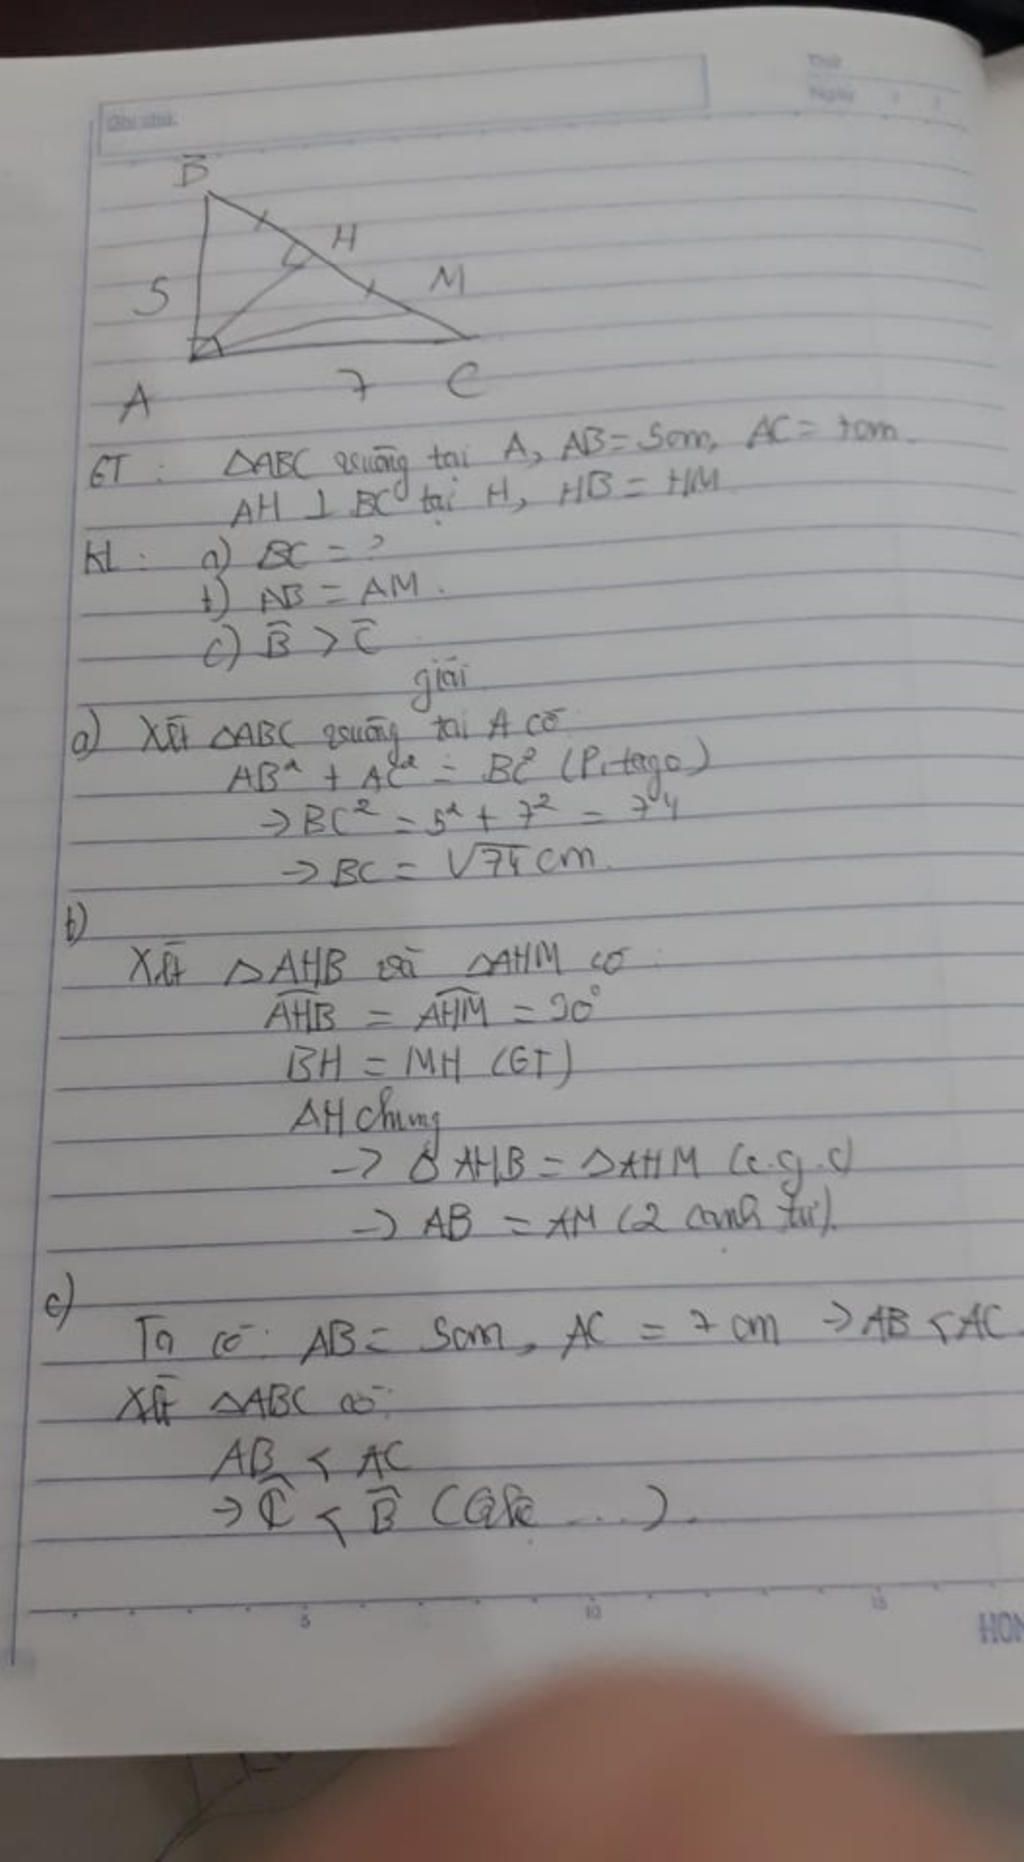 Ghi chú:
Thứ
Ngày
B
H
5
M
A
7
C
GT: ΔABC vuông tại A, AB = 5cm, AC = 7cm.
AH ⊥ BC tại H, HB = HM
KL: a) BC = ?
b) AB = AM.
c) B̂ > Ĉ
giải
a) Xét ΔABC vuông tại A có
AB² + AC² = BC² (Pitago)
→ BC² = 5² + 7² = 74
→ BC = √74 cm.
b)
Xét ΔAHB và ΔAHM có
AHB = AHM = 90°
BH = MH (GT)
AH chung
→ ΔAHB = ΔAHM (c.g.c)
→ AB = AM (2 cạnh tư).
c)
Ta có: AB = 5cm, AC = 7cm → AB < AC.
Xét ΔABC có:
AB < AC
→ Ĉ < B̂ ( ...).
5
10
15
HON